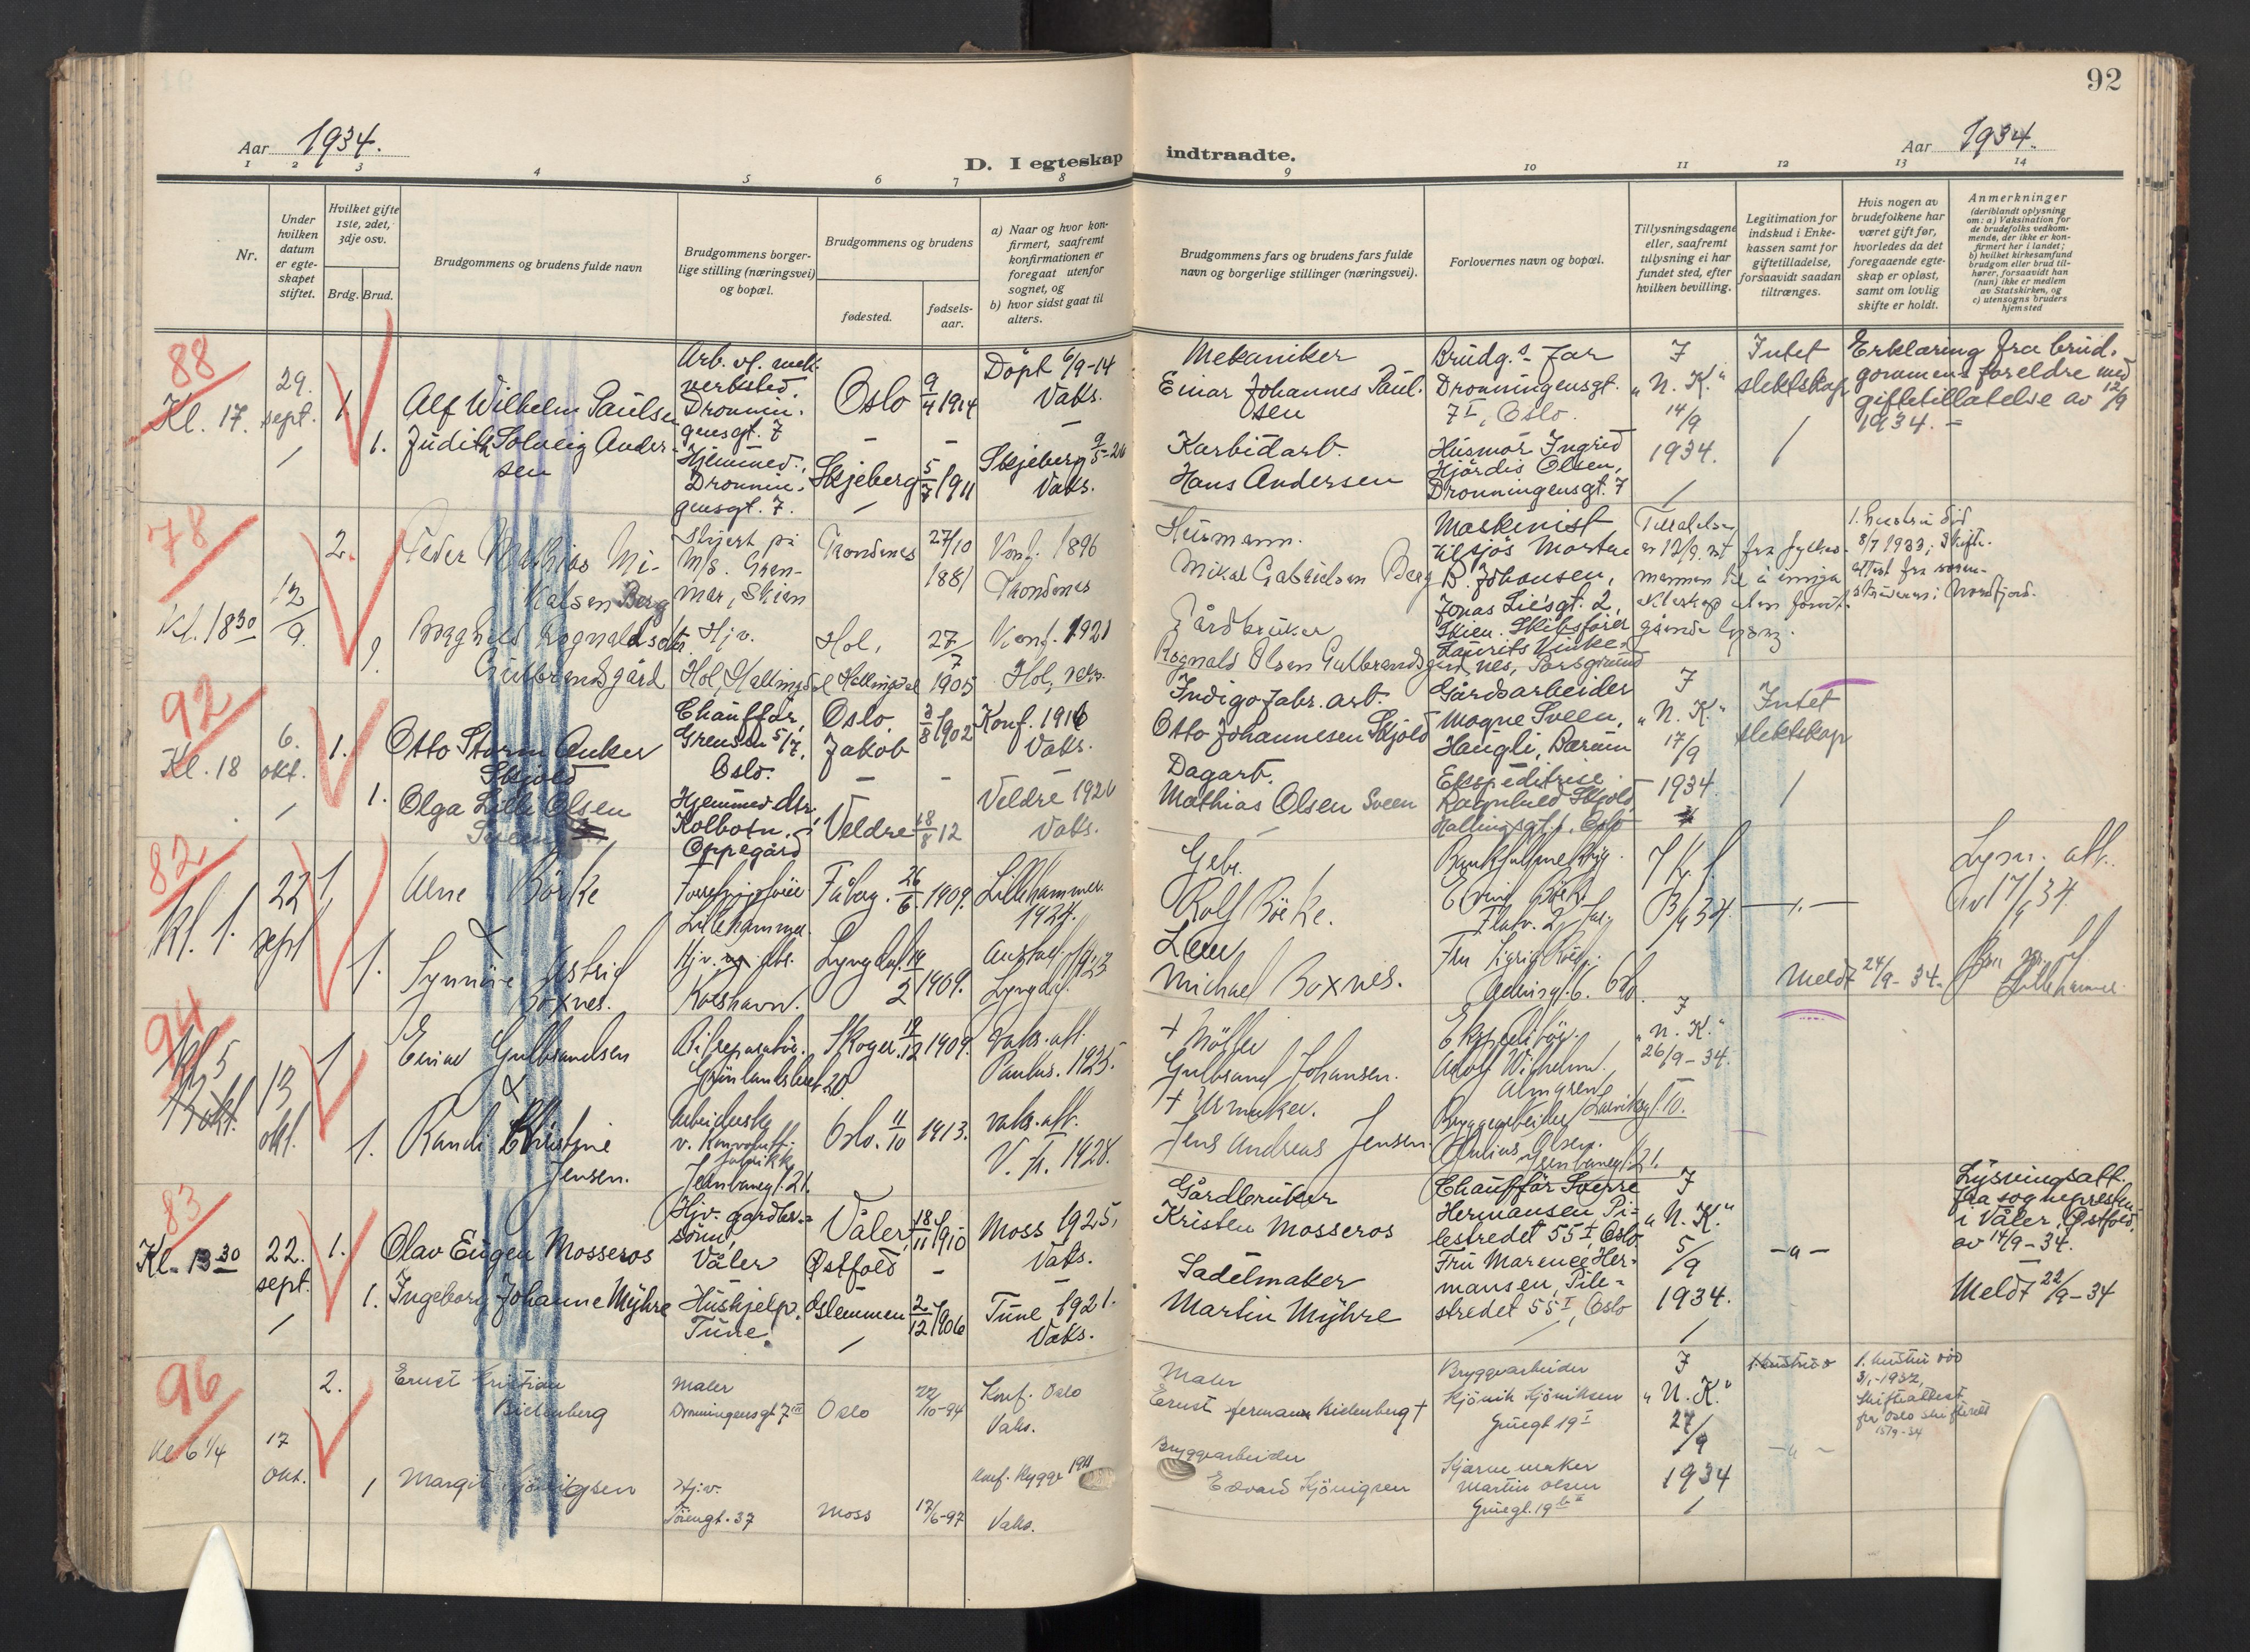 92
Aar 1934.
D. I egteskap indtraadte.
Aar 1934.
1 2 3 4 5 6 7 8 9 10 11 12 13 14
Nr.
Under hvilken datum er egteskapet stiftet.
Hvilket gifte 1ste, 2det, 3dje osv.
Brdg. Brud.
Brudgommens og brudens fulde navn
Brudgommens borgerlige stilling (næringsvei) og bopæl.
Brudgommens og brudens
fødested.
fødselsaar.
a) Naar og hvor konfirmert, saafremt konfirmationen er foregaat utenfor sognet, og
b) hvor sidst gaat til alters.
Brudgommens fars og brudens fars fulde navn og borgerlige stillinger (næringsvei).
Forlovernes navn og bopæl.
Tillysningsdagene eller, saafremt tillysning ei har fundet sted, efter hvilken bevilling.
Legitimation for indskud i Enkekassen samt for giftetilladelse, forsaavidt saadan tiltrænges.
Hvis nogen av brudefolkene har været gift før, hvorledes da det foregaaende egteskap er opløst, samt om lovlig skifte er holdt.
Anmerkninger
(deriblandt oplysning om: a) Vaksination for de brudefolks vedkommende, der ikke er konfirmert her i landet; b) hvilket kirkesamfund brudgom eller brud tilhører, forsaavidt han (hun) ikke er medlem av Statskirken, og c) utensogns bruders hjemsted
88
Kl. 17.
29. sept.
1.
Alf Wilhelm Paulsen
Arb. v/. mek. verksted. Dronningensgt. 7
Oslo
9/4 1914
Döpt 6/9-14
Vaks.
Mekaniker
Einar Johannes Paulsen
Brudg.s far
Dronningensgt. 7 I, Oslo.
I
"N. K."
14/9
1934.
Intet slektskap
Erklæring fra brudgommens foreldre med giftetillatelse av 12/9 1934. –
1. Judith Solveig Andersen
Hjemmed., Dronningensgt. 7.
Skjeberg
5/7 1911
Skjeberg 9/5-26
Vaks.
Karbidarb.
Hans Andersen
Husmor Ingrid Hjördis Olsen, Dronningensgt. 7
78
Kl. 18 30
12/9.
2.
Peder Mathias Mikalsen Berg
M/S. Granmar, Skien
Trondenes
27/10 1881
Konf. 1896
Trondenes
Husmann.
Mikal Gabrielsen Berg
Maskinist
til sjös Morten B. Johansen, Jonas Lie'sgt. 2, Skien.
Borghild Rognaldsdtr. Gulbrandsgård
Hjv.
Hol, Hallingdal
Hol, Hallingdal
27/7 1905
Konf. 1921
Hol,
Gårdbruker
Rognald Olsen Gulbrandsgård
Skibsförer Laurits Vinkenes, Porsgrund
1. hustru död 8/7 1933;
92
Kl. 18
6. okt.
1.
Otto Storm Anker Skjold
Chauffør, Grensen 5/7, Oslo.
Oslo, Jakob
3/8 1902
Konf. 1916
Vaks.
Indigofabr. arb.
Otto Johannesen Skjold
Gårdsarbeider
Mogne Sveen,
Haugli, Bærum
I
"N. K."
17/9
1934.
Intet slektskap
1. Olga Lilli Olsen Sveen
Hjemmed dtr. Kolbotn, Oppegård
Veldre
18/8 12
Veldre 1926
Vaks.
Dagarb.
Mathias Olsen Sveen
Ekspeditrise
Ragnhild Skjold
Oslo
82
Kl. 1.
22 sept
1
Arne Börke
Lillehammer.
Fåberg.
26/6. 1909.
Lillehammer 1924.
Rolf Börke.
1. Synnöve Astrid Boxnes.
Hjv.
Lyngdal
19/2 1909.
Austad 1923
Lyngdal.
Michael Boxnes.
Lysn. att. av 17/9 34.
Meldt 24/9-34.
Lillehammer
94
kl 5
13 okt.
1
Einar Gulbrandsen
Bilreparatör.
Grönlandsleret 20.
Skoger.
19/12 1909.
Vaks. att.
Paulus. 1925.
+ Möller
Gulbrand Johansen.
Ekspeditör.
Adolf Wilhelm Almgren
I
"N. K."
26/9-34.
1. Randi Christine Jensen.
Arbeiderske v. Konvoluttfabrikk
Jernbanegt. 21.
Oslo.
11/10 1913.
Vaks. att.
V. Fr. 1928.
+ Urmaker.
Jens Andreas Jensen.
Bryggearbeider
Julius Olsen.
Jernbanegt. 21.
83
Kl. 13 30
22. sept.
1.
Olav Eugen Mosseros
Hjv. gårdbr.-sönn,
Våler
Våler, Østfold
18/11 1910
Moss 1925,
Vaks.
Gårdbruker
Kristen Mosseros
Chauffør Sverre Hermansen Pilestredet 55 I, Oslo
I
"N. K."
5/9
1934.
– " –
Lysningsatt. fra sognepresten i Våler, Østfold, av 14/9-34.
Meldt 22/9-34
1. Ingeborg Johanne Myhre
Hushjelp.
Tune.
Glemmen
2/12 1906
Tune 1921.
Vaks.
Sadelmaker
Martin Myhre
Fru Marence Hermansen, Pilestredet 55 I, Oslo
96
Kl 6 1/4
17 Okt.
2.
Ernst Kristian Bielenberg
Maler
Dronningensgt 7 III
Oslo
22/10-94
Konf. Oslo
Vaks.
Maler
Ernst Herman Bielenberg +
Bryggearbeider
Gruegt 19 I
I
"N. K."
27/9
1934
1. hustru död
3/1-1932,
Skifteattest fra Oslo skifterett 15/9-34
1
Margit
Hj.v.
Töiengt. 37
Moss
17/6-97
Konf. Rygge 1911
Vaks.
Bryggearbeider
Edvard
Martin Olsen